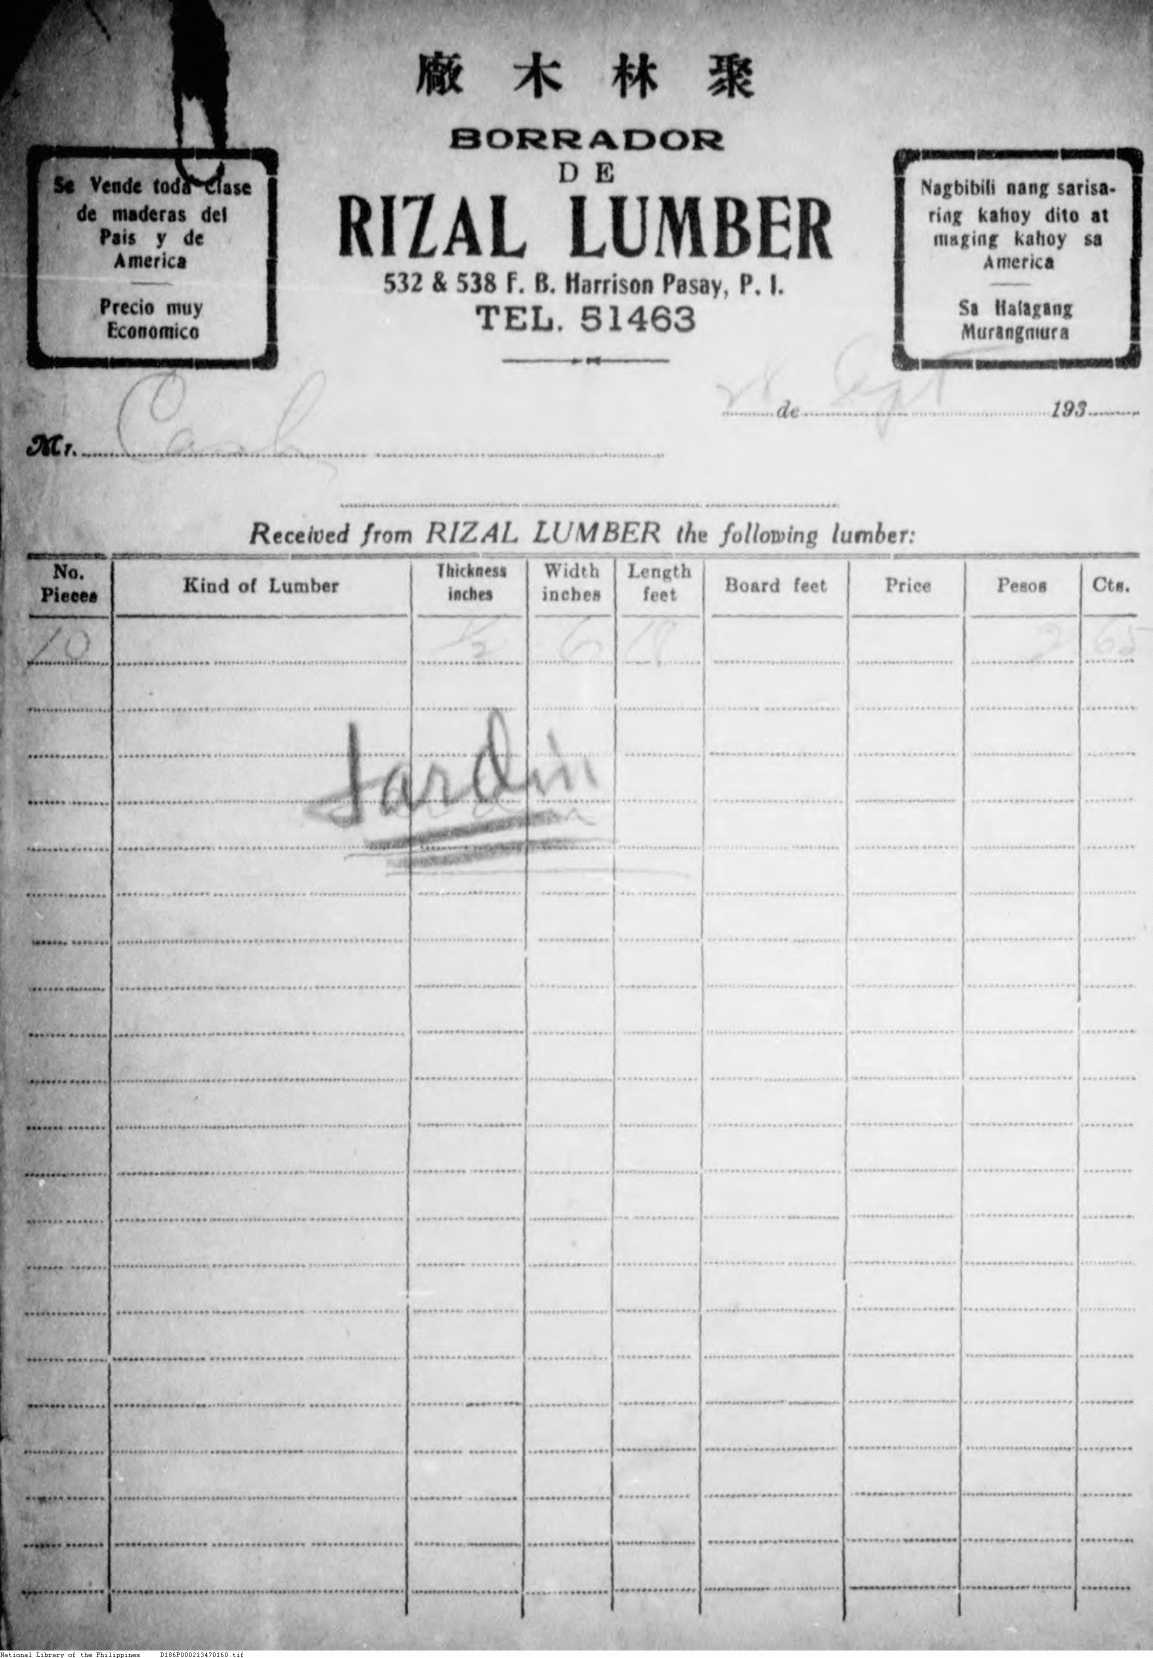 廠木林聚
BORRADOR
DE
RIZAL LUMBER
532 & 538 F. B. Harrison Pasay, P. I.
TEL. 51463
Se Vende toda Clase
de maderas del
Pais y de
America
Precio muy
Economico
Nagbibili nang sarisa-
ring kahoy dito at
maging kahoy sa
America
Sa Halagang
Murangmura
28 de Sept 193
Mr. Cash
Received from RIZAL LUMBER the following lumber:
No. Pieces Kind of Lumber Thickness inches Width inches Length feet Board feet Price Pesos Cts.
10 1/2 6 18 2 65
Jardin
National Library of the Philippines D186P000213470160.tif